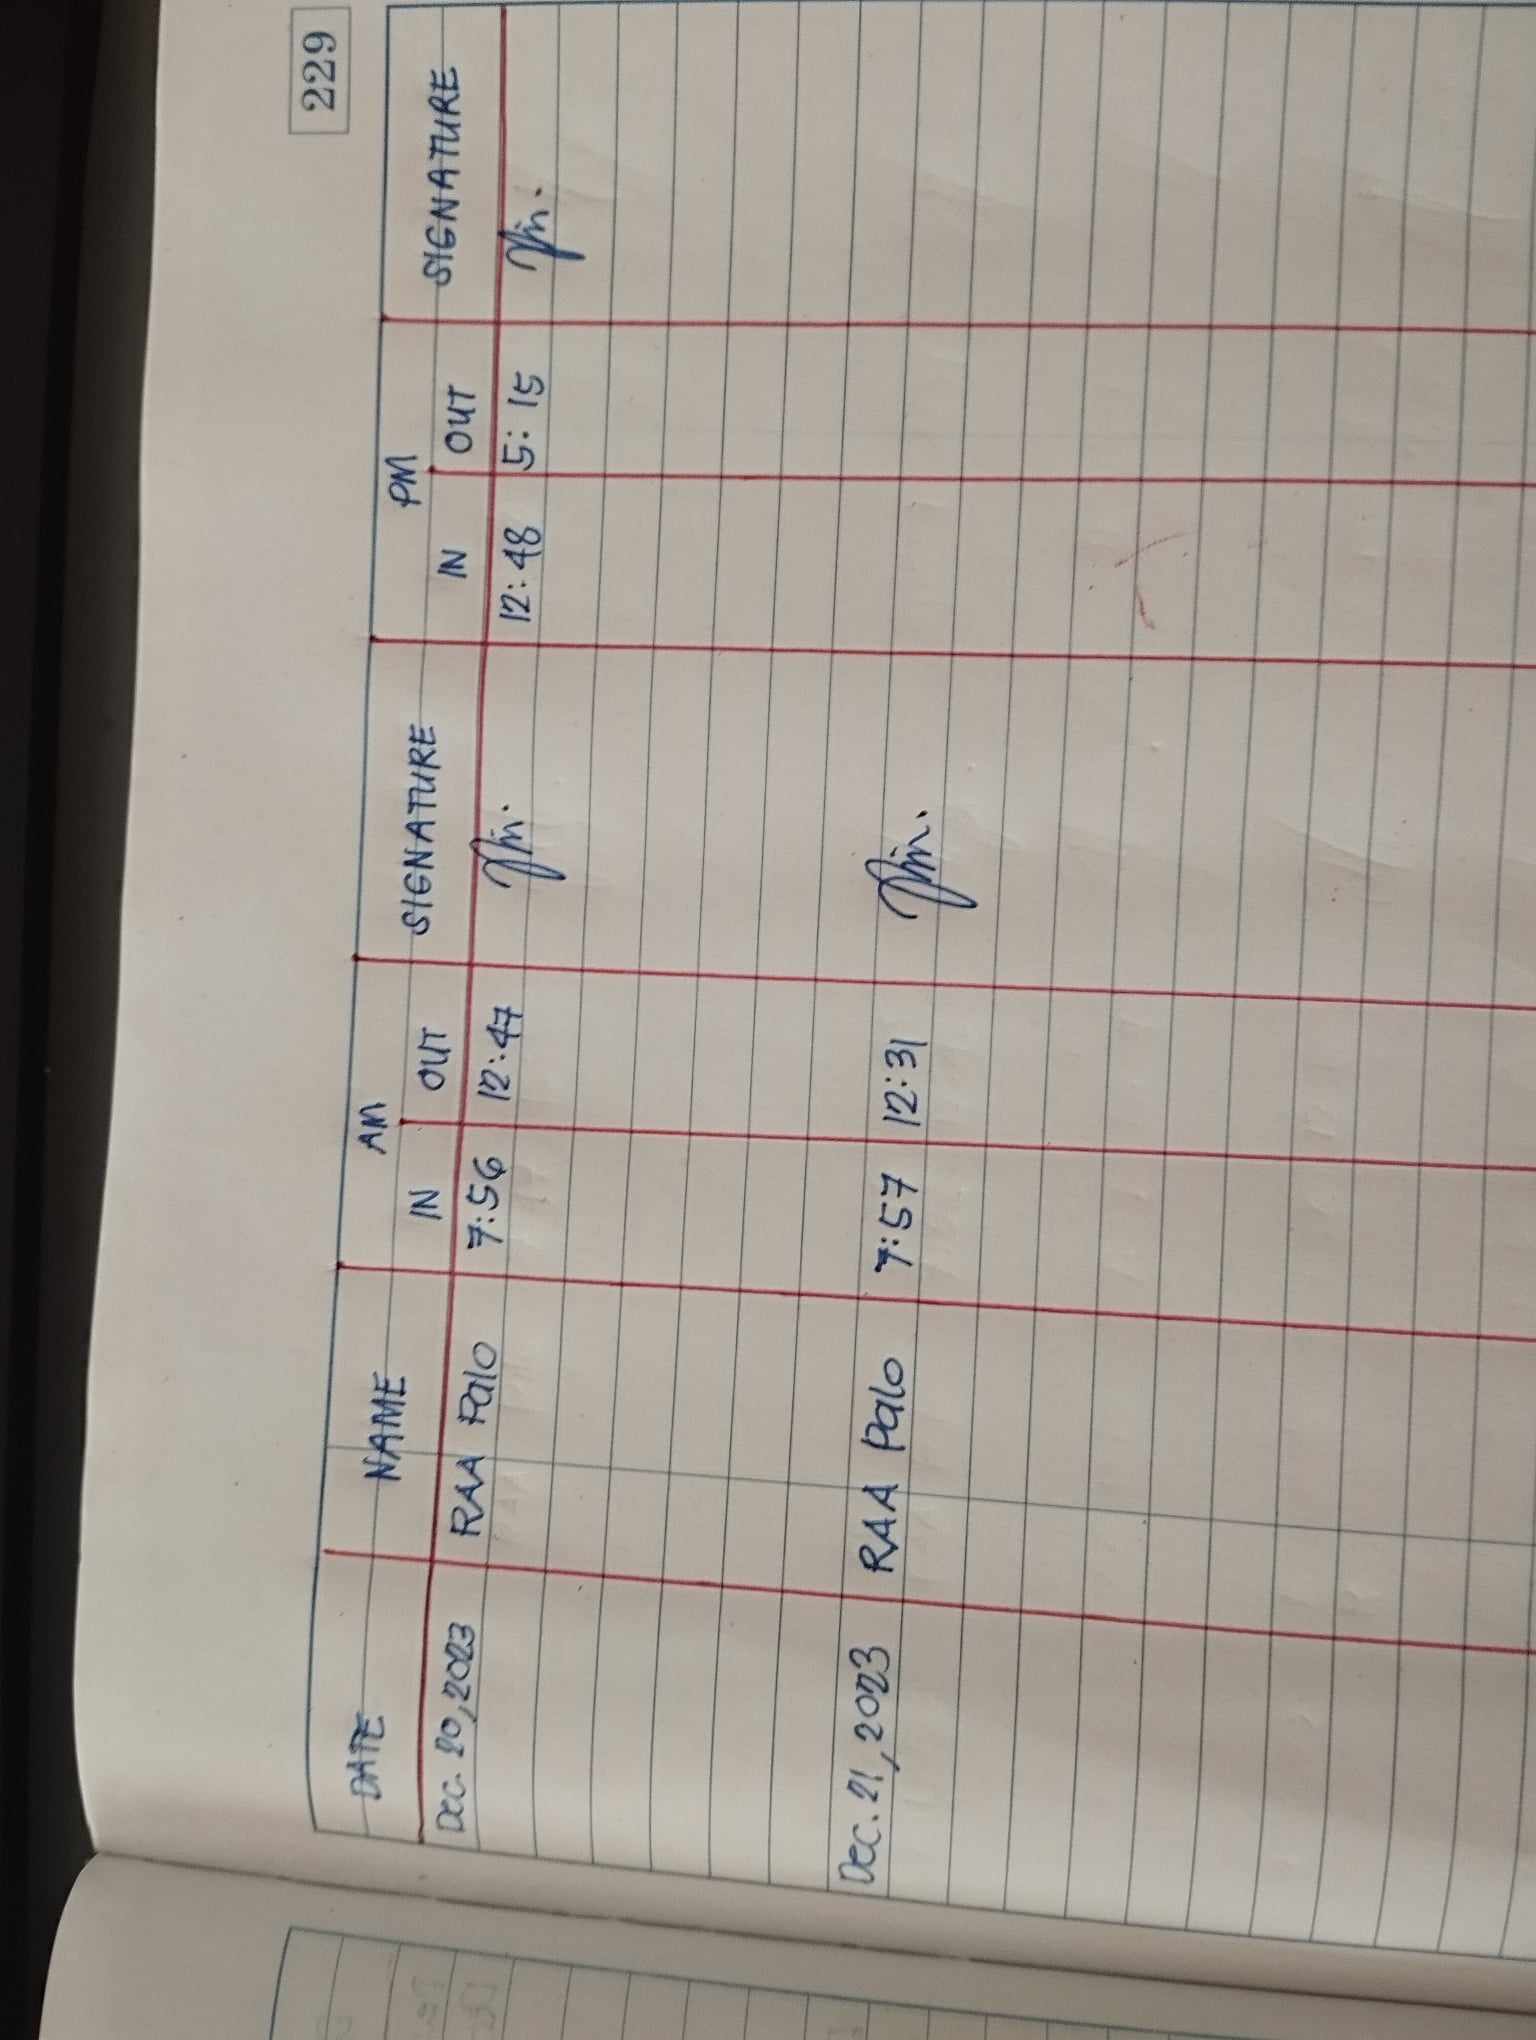 229
DATE NAME AM SIGNATURE PM SIGNATURE
IN OUT IN OUT
Dec. 20, 2023 RAA Palo 7:56 12:47 12:48 5:15
Dec. 21, 2023 RAA Palo 7:57 12:31